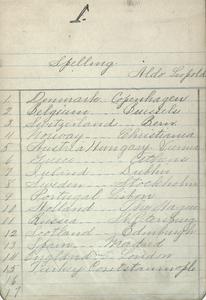 1.
Spelling
Aldo Leopold
1 Denmark Copenhagen
2 Belgium Brussels
3 Switzerland Bern
4 Norway Christiania
5 Austria Hungary Vienna
6 Greece
7 Ireland Dublin
8 Sweden Stockholm
9 Portugal Lisbon
10 Holland The Hague
11 Russia St. Petersburg
12 Scotland Edinburgh
13 Spain Madrid
14 England London
15 Turkey Constantinople
16
17